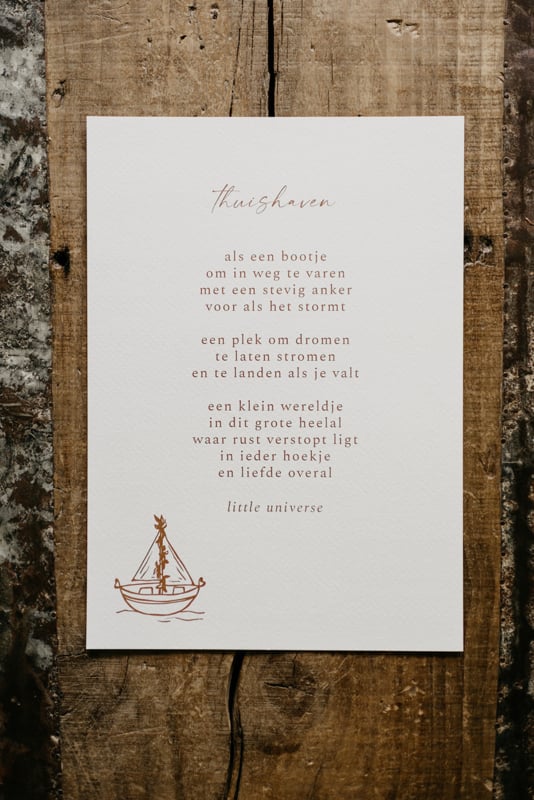 thuishaven
als een bootje
om in weg te varen
met een stevig anker
voor als het stormt
een plek om dromen
te laten stromen
en te landen als je valt
een klein wereldje
in dit grote heelal
waar rust verstopt ligt
in ieder hoekje
en liefde overal
little universe